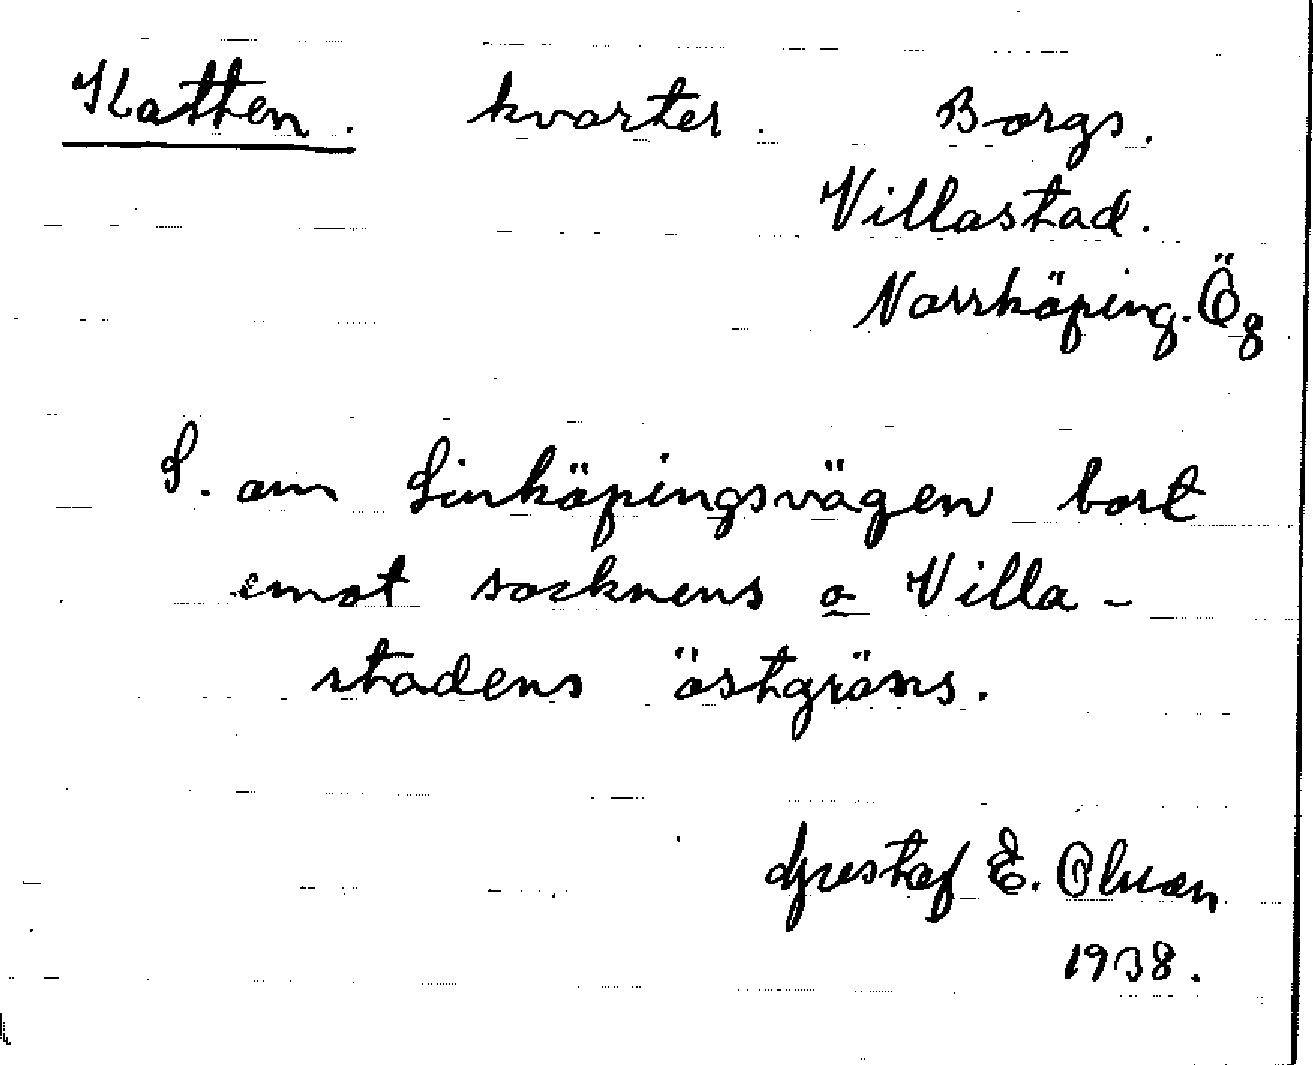 Katten. kvarter. Borgs.
Villastad.
Norrköping. Ög
S. om Linköpingsvägen bort
emot socknens o Villa-
stadens östgräns.
Gustaf E. Olsson
1938.